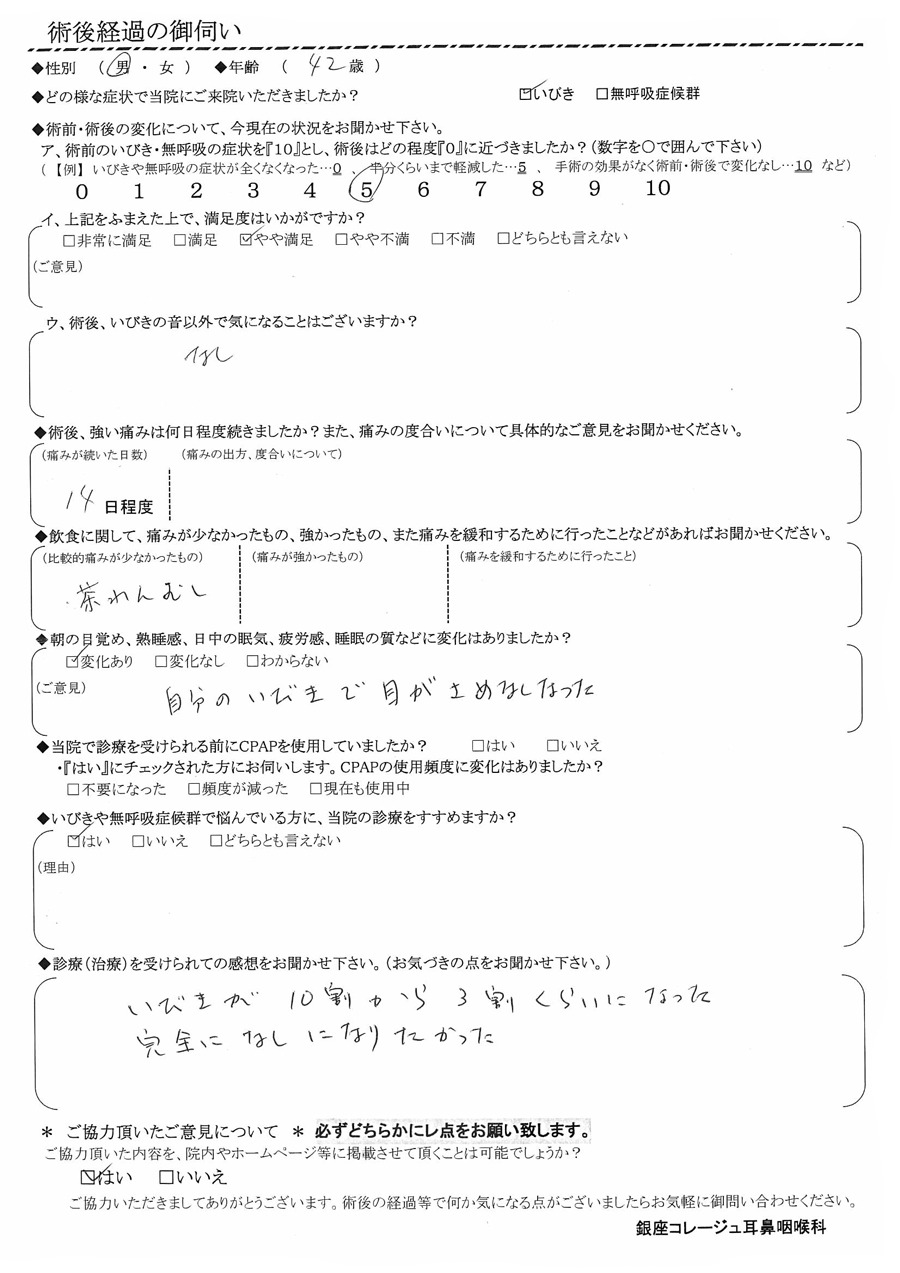 術後経過の御伺い
◆性別 （ 男 ・ 女 ） ◆年齢 （ 42 歳 ）
◆どの様な症状で当院にご来院いただきましたか？ ☑いびき □無呼吸症候群
◆術前・術後の変化について、今現在の状況をお聞かせ下さい。
ア、術前のいびき・無呼吸の症状を『10』とし、術後はどの程度『0』に近づきましたか？（数字を〇で囲んで下さい）
（ 【例】 いびきや無呼吸の症状が全くなくなった…0 、 半分くらいまで軽減した…5 、 手術の効果がなく術前・術後で変化なし…10 など）
0 1 2 3 4 5 6 7 8 9 10
イ、上記をふまえた上で、満足度はいかがですか？
□非常に満足 □満足 ☑やや満足 □やや不満 □不満 □どちらとも言えない
（ご意見）
ウ、術後、いびきの音以外で気になることはございますか？
なし
◆術後、強い痛みは何日程度続きましたか？また、痛みの度合いについて具体的なご意見をお聞かせください。
（痛みが続いた日数） （痛みの出方、度合いについて）
14 日程度
◆飲食に関して、痛みが少なかったもの、強かったもの、また痛みを緩和するために行ったことなどがあればお聞かせください。
（比較的痛みが少なかったもの） （痛みが強かったもの） （痛みを緩和するために行ったこと）
茶わんむし
◆朝の目覚め、熟睡感、日中の眠気、疲労感、睡眠の質などに変化はありましたか？
☑変化あり □変化なし □わからない
（ご意見） 自分のいびきで目がさめなしなった
◆当院で診療を受けられる前にCPAPを使用していましたか？ □はい □いいえ
・『はい』にチェックされた方にお伺いします。CPAPの使用頻度に変化はありましたか？
□不要になった □頻度が減った □現在も使用中
◆いびきや無呼吸症候群で悩んでいる方に、当院の診療をすすめますか？
☑はい □いいえ □どちらとも言えない
（理由）
◆診療（治療）を受けられての感想をお聞かせ下さい。（お気づきの点をお聞かせ下さい。）
いびきが 10割から 3割くらいになった
完全に なしになりたかった
＊ ご協力頂いたご意見について ＊ 必ずどちらかにレ点をお願い致します。
ご協力頂いた内容を、院内やホームページ等に掲載させて頂くことは可能でしょうか？
☑はい □いいえ
ご協力いただきましてありがとうございます。術後の経過等で何か気になる点がございましたらお気軽に御問い合わせください。
銀座コレージュ耳鼻咽喉科